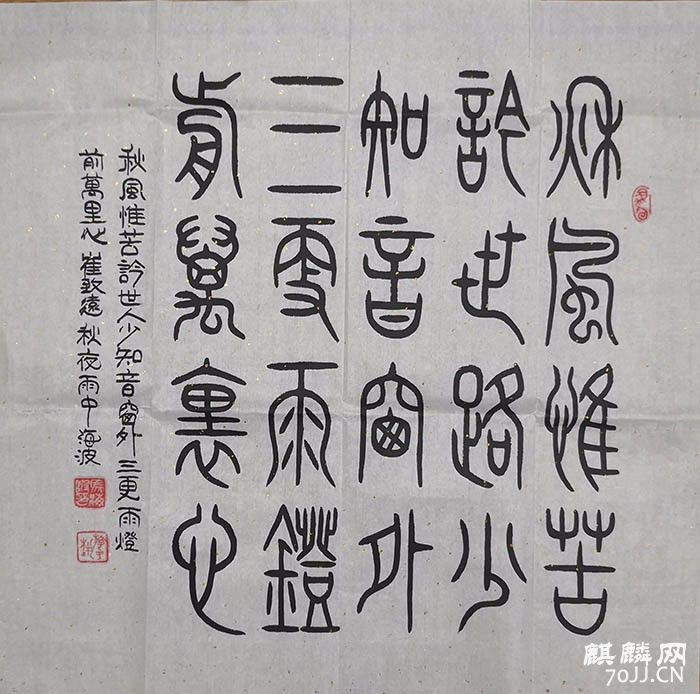 秋風惟苦
訡世路少
知音窗外
三更雨鐙
前萬裏心
秋風惟苦訡世人少知音窗外三更雨燈
前萬里心崔致遠秋夜雨中海波
麒麟网
70JJ.CN